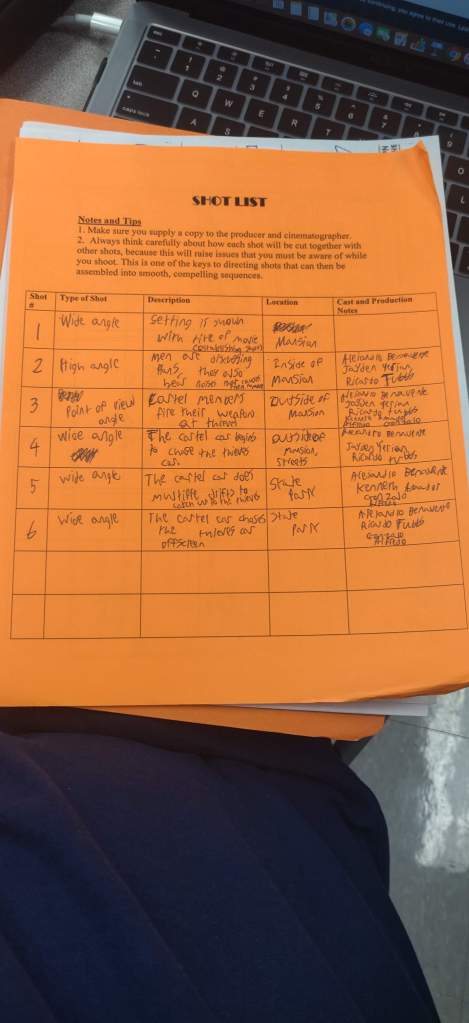 SHOT LIST
Notes and Tips
1. Make sure you supply a copy to the producer and cinematographer.
2. Always think carefully about how each shot will be cut together with
other shots, because this will raise issues that you must be aware of while
you shoot. This is one of the keys to directing shots that can then be
assembled into smooth, compelling sequences.
Shot # Type of Shot Description Location Cast and Production Notes
1 Wide angle
setting is shown
with title of movie
(establishing shot)
Mansion
2 High angle
men are discussing
Plans, they also
hear noise
Inside of
Mansion
Jayden Yerian
Ricardo Tubbs
3
Point of view
angle
Cartel members
fire their weapons
at thieves
outside of
Mansion
4 wide angle
The cartel car begins
to chase the thieves
car.
outside of
mansion,
streets
Jayden Yerian
Ricardo Tubbs
5 wide angle
The cartel car does
multiple drifts to
catch up to the thieves
State
Park
Alejandro Benavente
Kenneth
Gonzalo
Alfredo
6 Wide angle
The cartel car chases
the thieves car
offscreen
State
Park
Alejandro Benavente
Ricardo Tubbs
Gonzalo
Alfredo